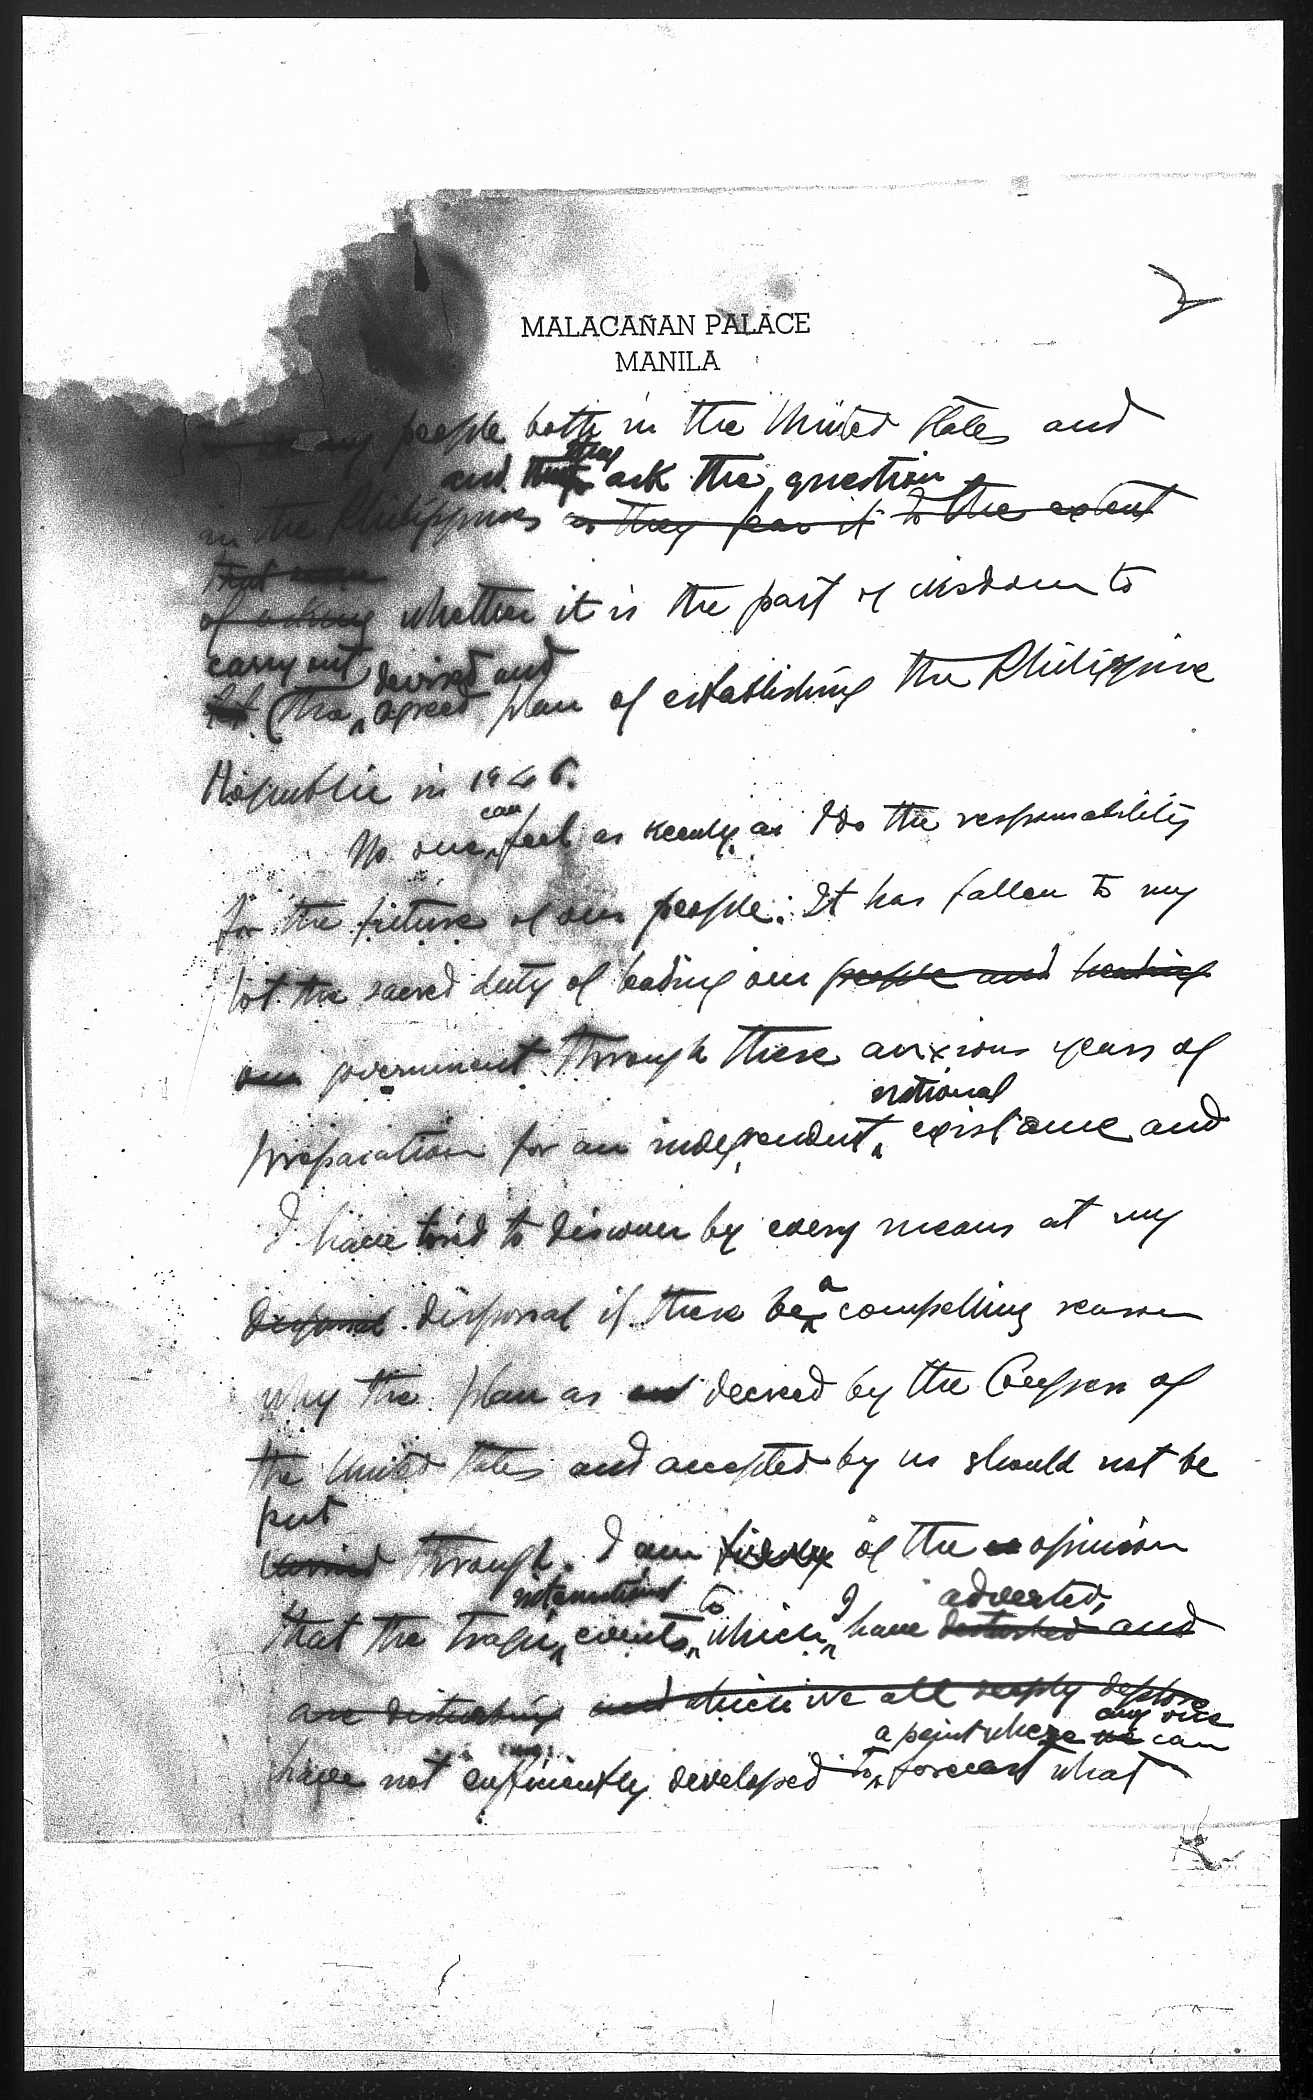 2
MALACAÑAN PALACE
MANILA
people both in the United States and
and they ask the question
in the Philippines as they fear it to the extent
that
of asking whether it is the part of wisdom to
carry out devised and
(the agreed plan of establishing the Philippine
Republic in 1946.
can
No one feel as keenly as I do the responsability
for the future of our people. It has fallen to my
lot the sacred duty of leading our people and heading
our government through these anxious years of
national
preparation for an independent existance and
I have tried to discover by every means at my
disposal if there be a compelling reason
why the plan as decreed by the Congress of
the United States and accepted by us should not be
put
carried through. I am firmly of the opinion
international to I adverted,
that the tragic events which have disturbed and
are disturbing and which we all deeply deplore
a point where we can any one
have not sufficiently developed to forecast what